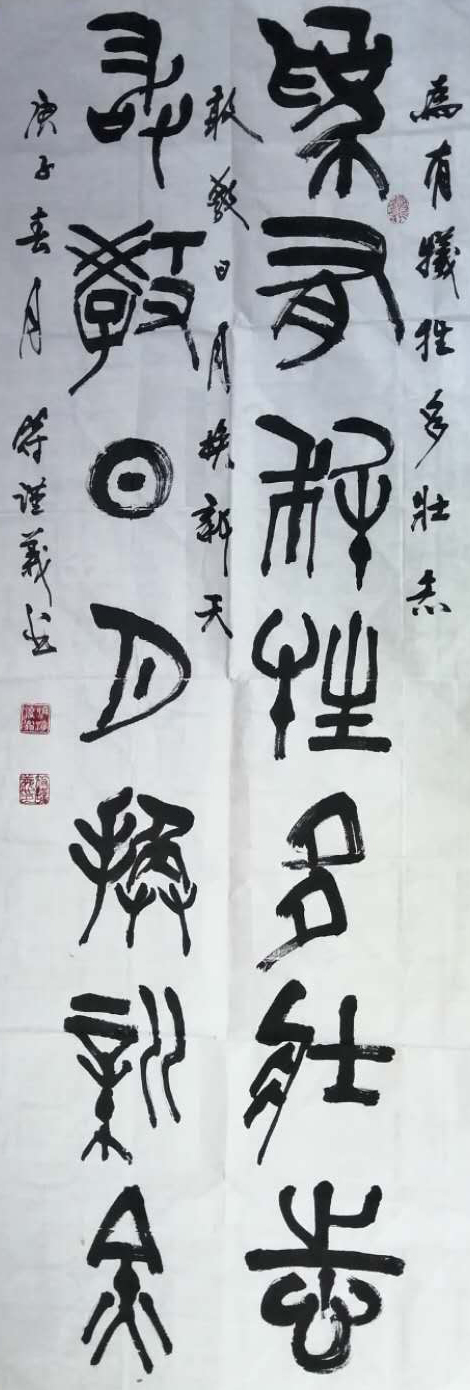 為有犧牲多壯志
為有犧牲多壯志
敢教日月換新天
敢教日月換新天
庚子春月 符謹義书